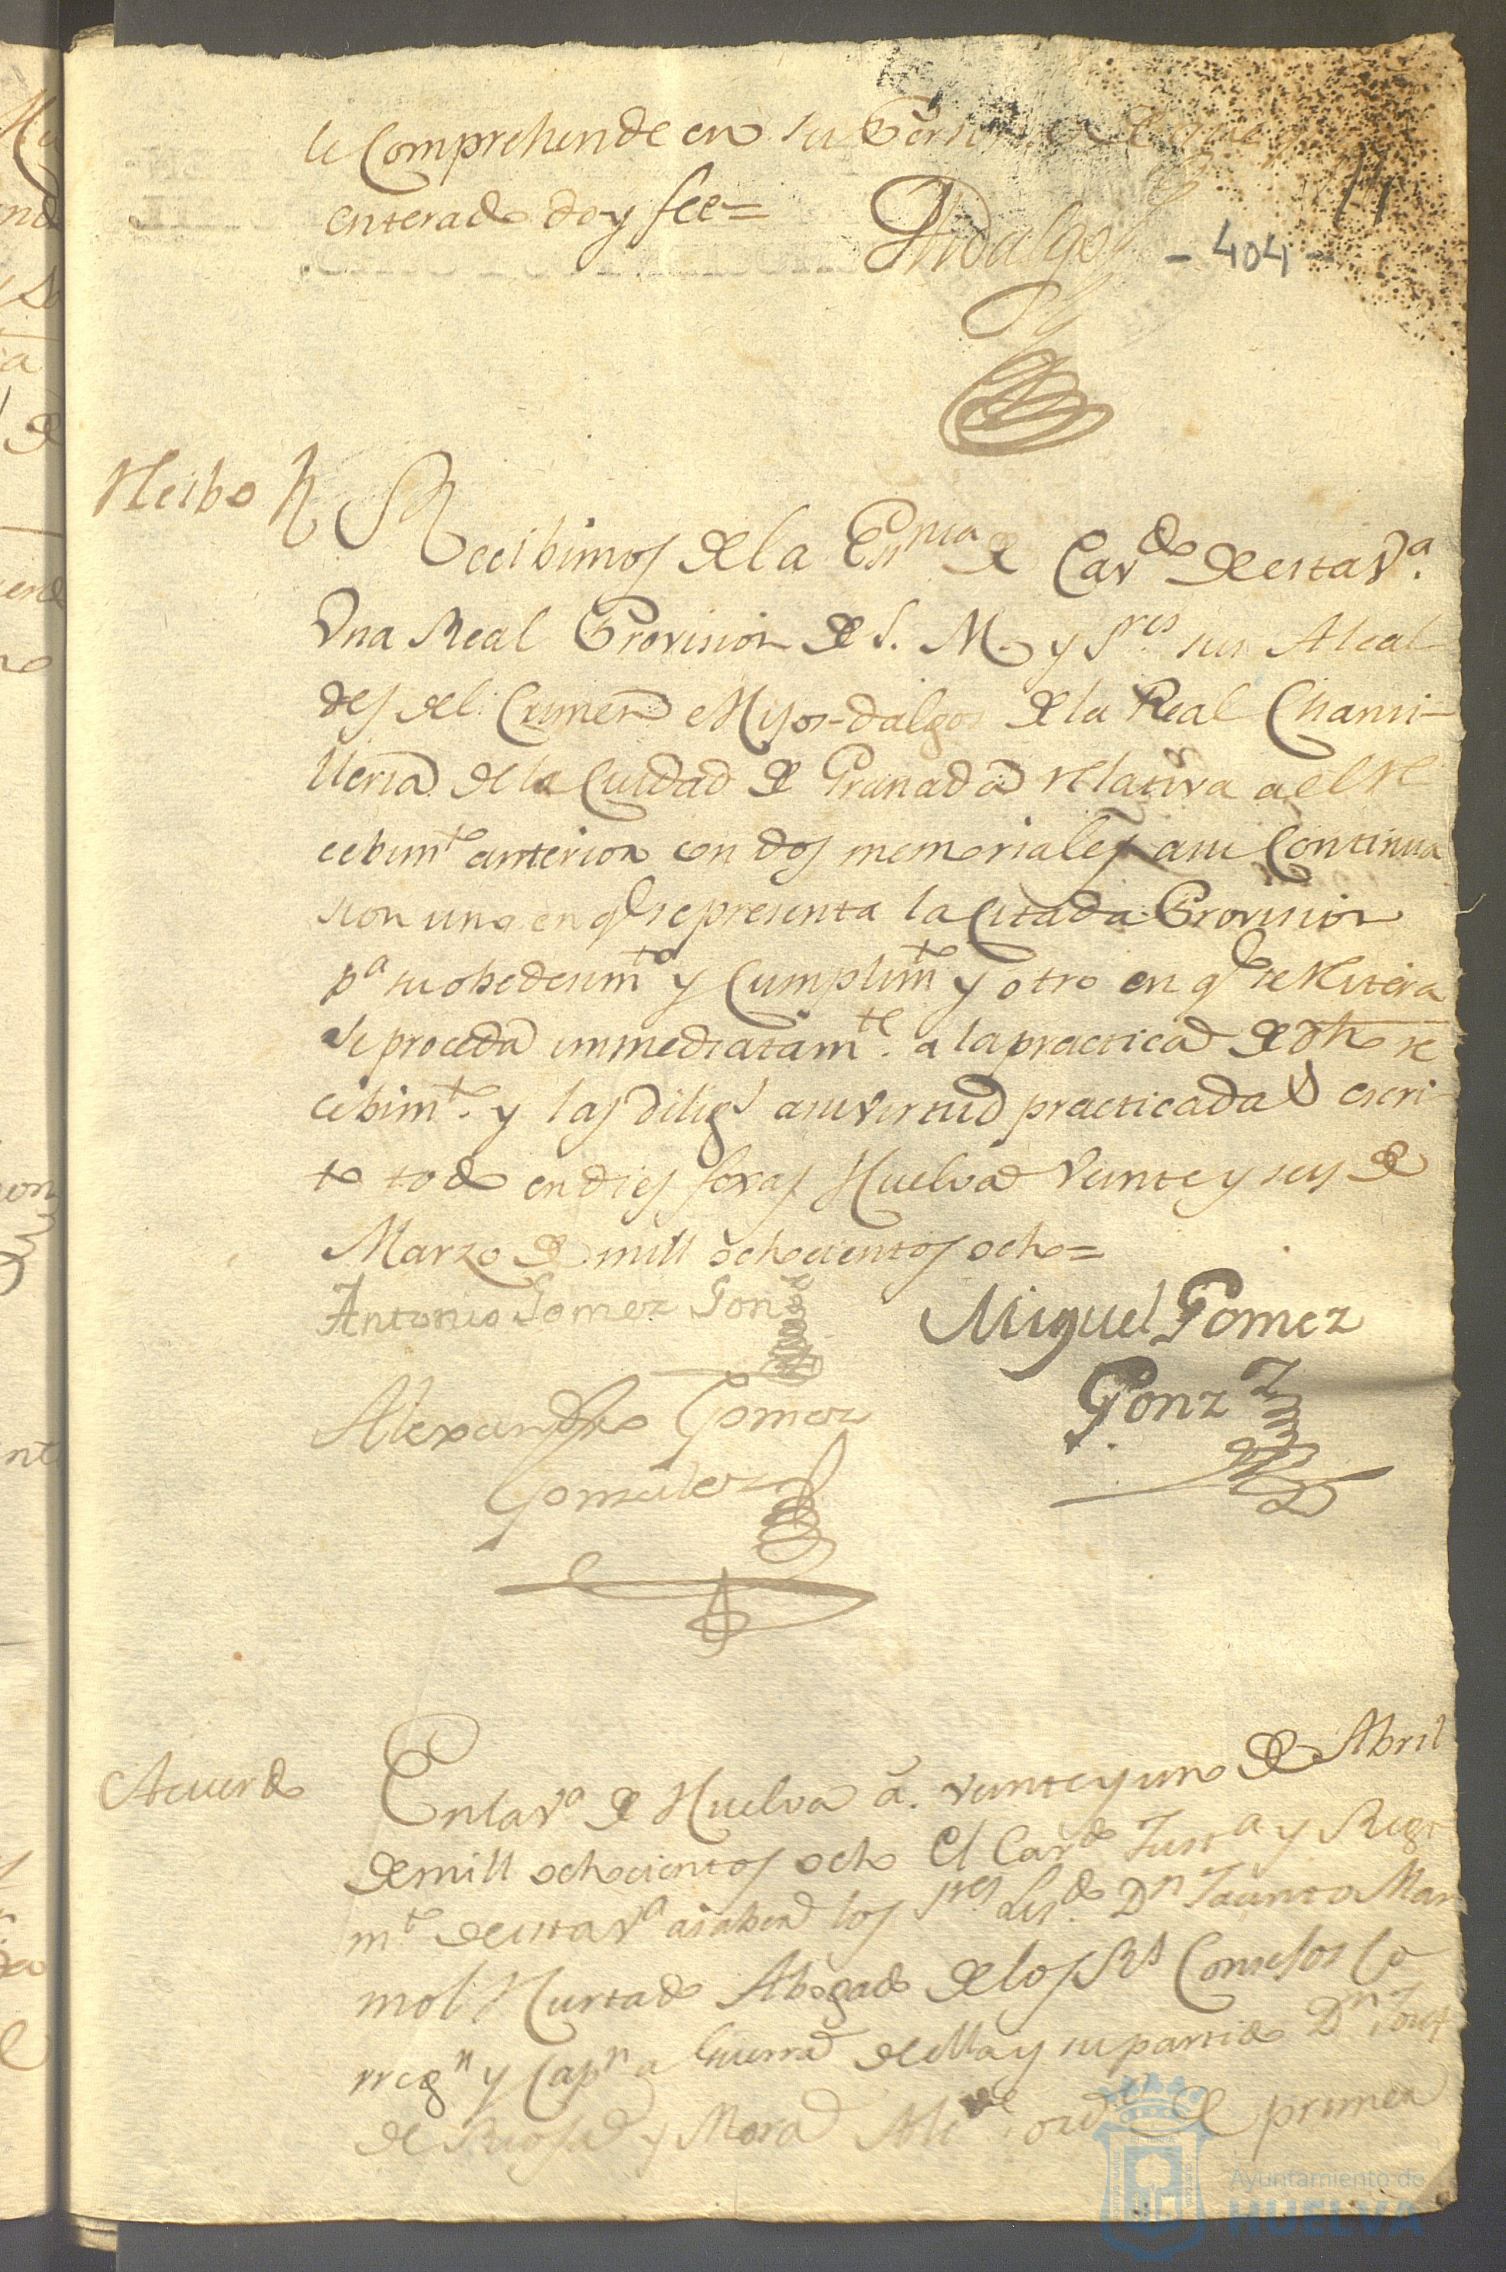 le Comprehende en su Persona de que
enterado doy fee=
Hidalgo
- 404 -
Reibo
Recibimos de la Esnia de Cavdo de esta Va.
Vna Real Provision de S. M. y Sres sus Alcal
des del Crimen e Hijos-dalgos de la Real Chansi-
lleria de la Ciudad de Granada relativa a el re
cebimto anterior con dos memoriales a su Continua
sion uno en q se presenta la Citada Provision
pa su obedesimto y Cumplimto y otro en q se reitera
se proceda immediatamte. a la practica de dho re
cibimto. y las diligs a su virtud practicadas escri-
to todo en dies foxas Huelva Veinte y seis de
Marzo de mill ochocientos ocho=
Antonio Gomez Gonz
Miguel Gomez
Gonzz
Alexandro Gomez
Gonzalez
Acuerdo
En la Va de Huelva a. veinte y uno de Abril
de mill ochocientos ocho el Cavdo Justa y Regi
mto de esta Va a saber los Sres Lisdo. Dn Jacinto Mar
mol Hurtado Abogado de los Rs Consejos Co
rregn y Capn a Guerra de ella y su partido Dn Josef
de Rioja y Mora Alcde. orde de primera
Ayuntamiento de
HUELVA